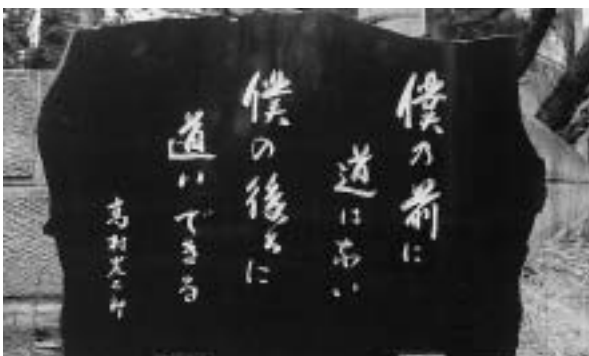 僕の前に
道はない
僕の後ろに
道はできる
高村光太郎